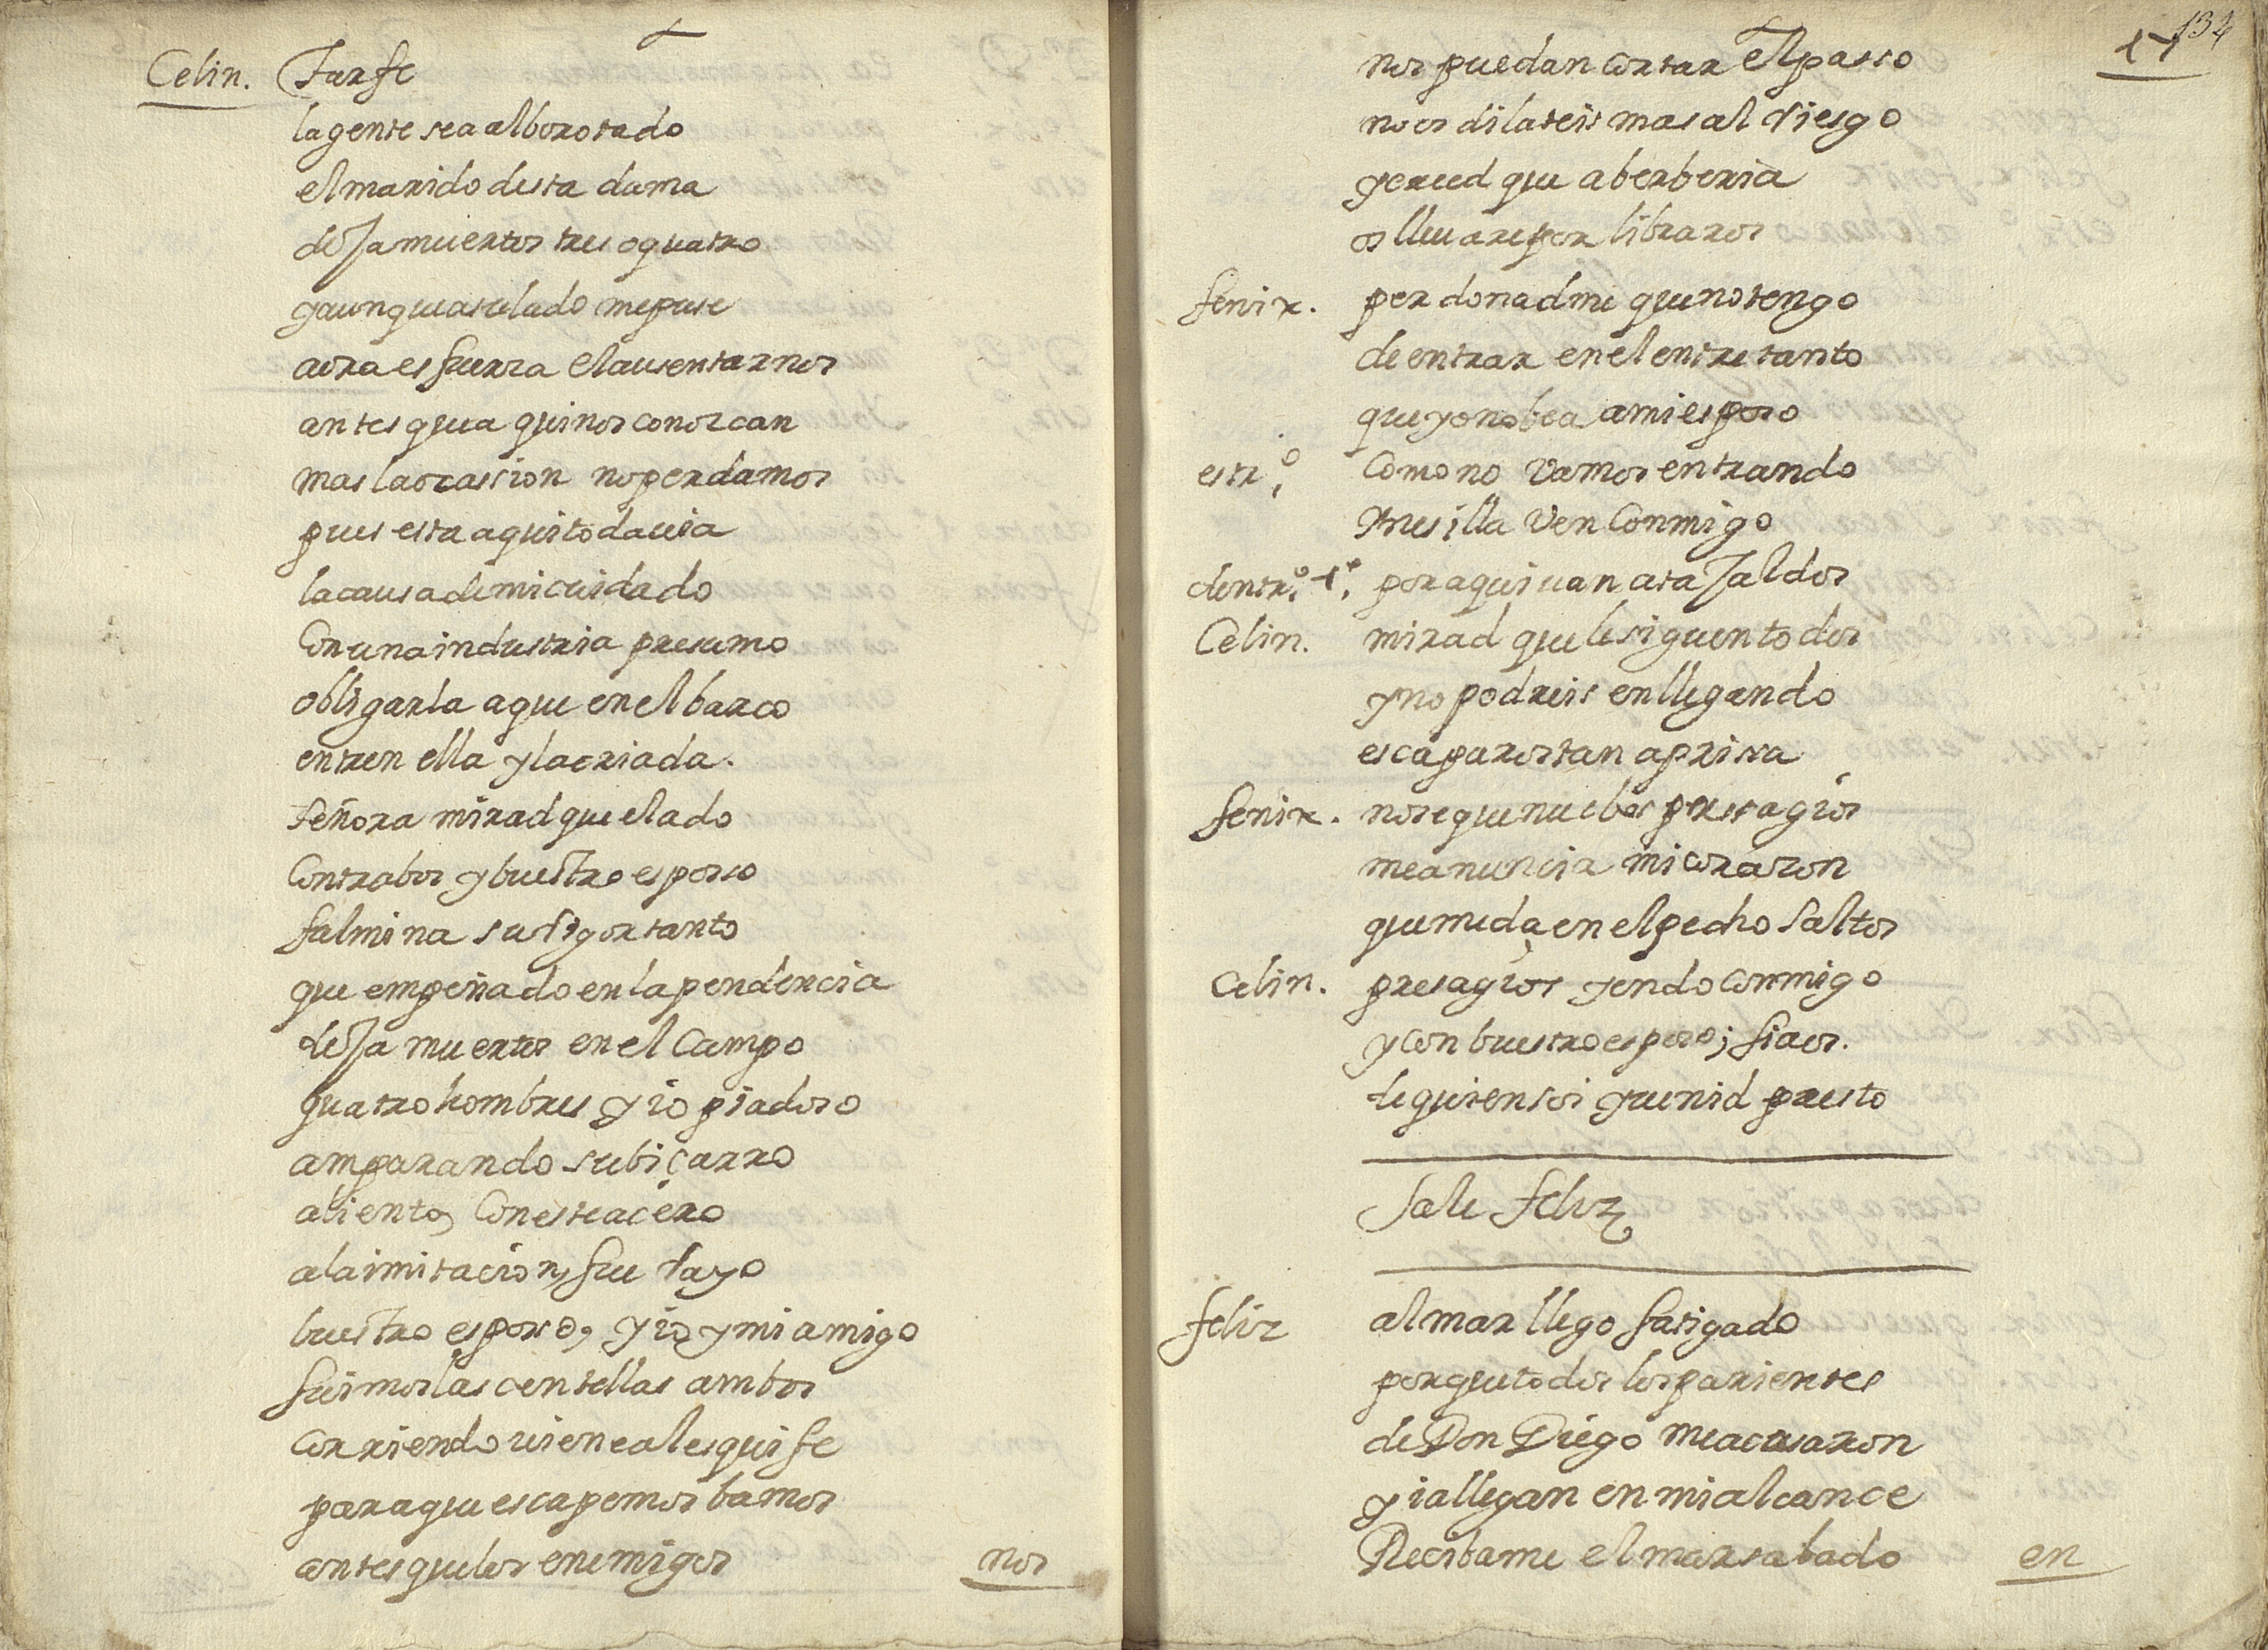 Celin. Tarfe
la gente sea alborotado
el marido desta dama
deja muertos tres o quatro
y aunque a su lado me puse
aora es fuerza el ausentarnos
antes qua qui nos conozcan
mas la ocassion no perdamos
pues esta aqui todauia
la causa de mi cuidado
Con una industria presumo
obligarla a que en el barco
entren ella y la criada.
señora mirad que el ado
Contra bos y buestro esposso
falmina su rigor tanto
que empeñado en la pendencia
deja muertos en el Campo
quatro hombres y io piadoso
amparando su biçarro
aliento, Con este acero
a la imitacion, fue rayo
buestro esposo, y io y mi amigo
fuimos las centellas ambos
Corriendo uiene al esquife
para que escapemos bamos
antes que los enemigos
nos
134
nos puedan cortar El passo
no os dilateis mas al riesgo
y creed que a berberia
os lleuare por libraros
fenix. perdonadme que no tengo
de entrar en el entre tanto
que yo no bea a mi esposo
estr.º Como no Vamos entrando
Ynesilla Ven Conmigo
dentr.º 1.º por aqui uan atajaldos
Celin. mirad que le siguen todos
y no podreis en llegando
escaparos tan aprissa
fenix. no se que nuebos presagios
me anuncia mi corazon
que me da en el pecho saltos
Celin. presagios yendo Conmigo
y con buestro esposo; fiaos.
de quien soi y uenid presto
Sale feliz
feliz al mar llego fatigado
porque todos los parientes
de Don Diego me acusaron
y ia llegan en mi alcance
Recibame el mar salado
en